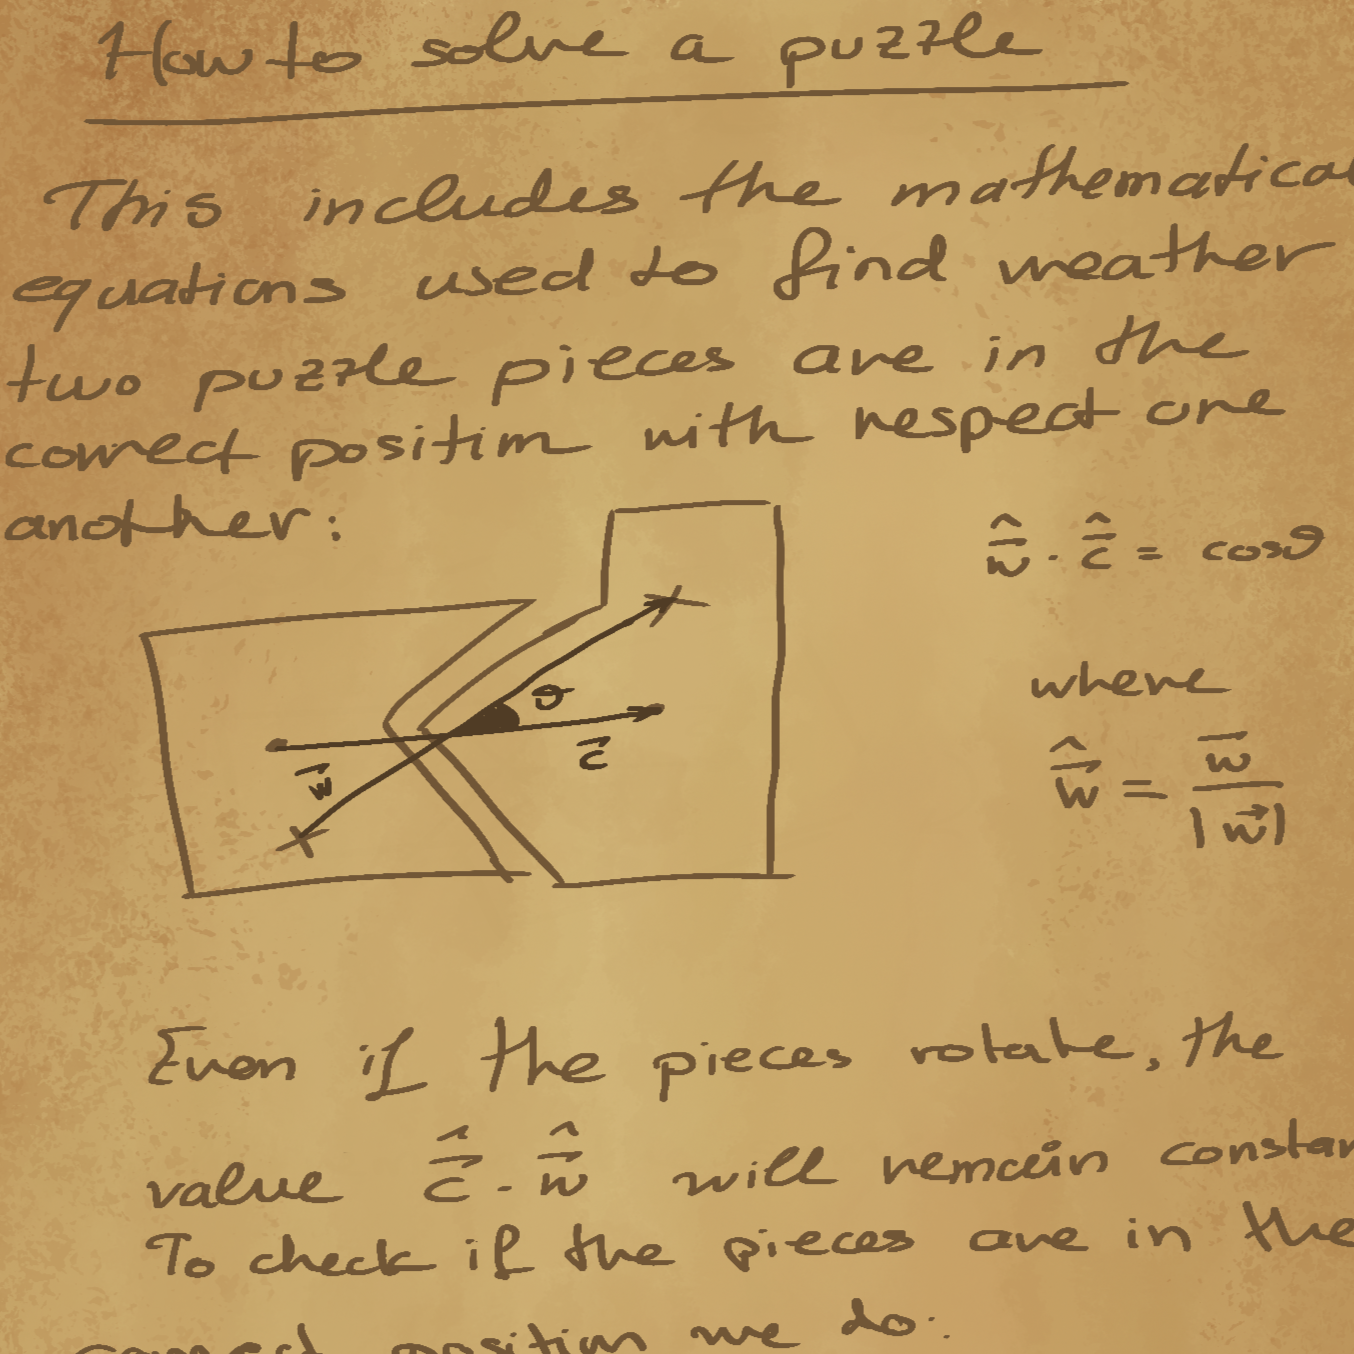 How to solve a puzzle
This includes the mathematical
equations used to find weather
two puzzle pieces are in the
correct position with respect one
another:
ŵ⃗ · ĉ⃗ = cosϑ
ϑ
c⃗
w⃗
where
ŵ⃗ = w⃗ / |w⃗|
Even if the pieces rotate, the
value ĉ⃗ · ŵ⃗ will remain constan
To check if the pieces are in the
correct position we do: